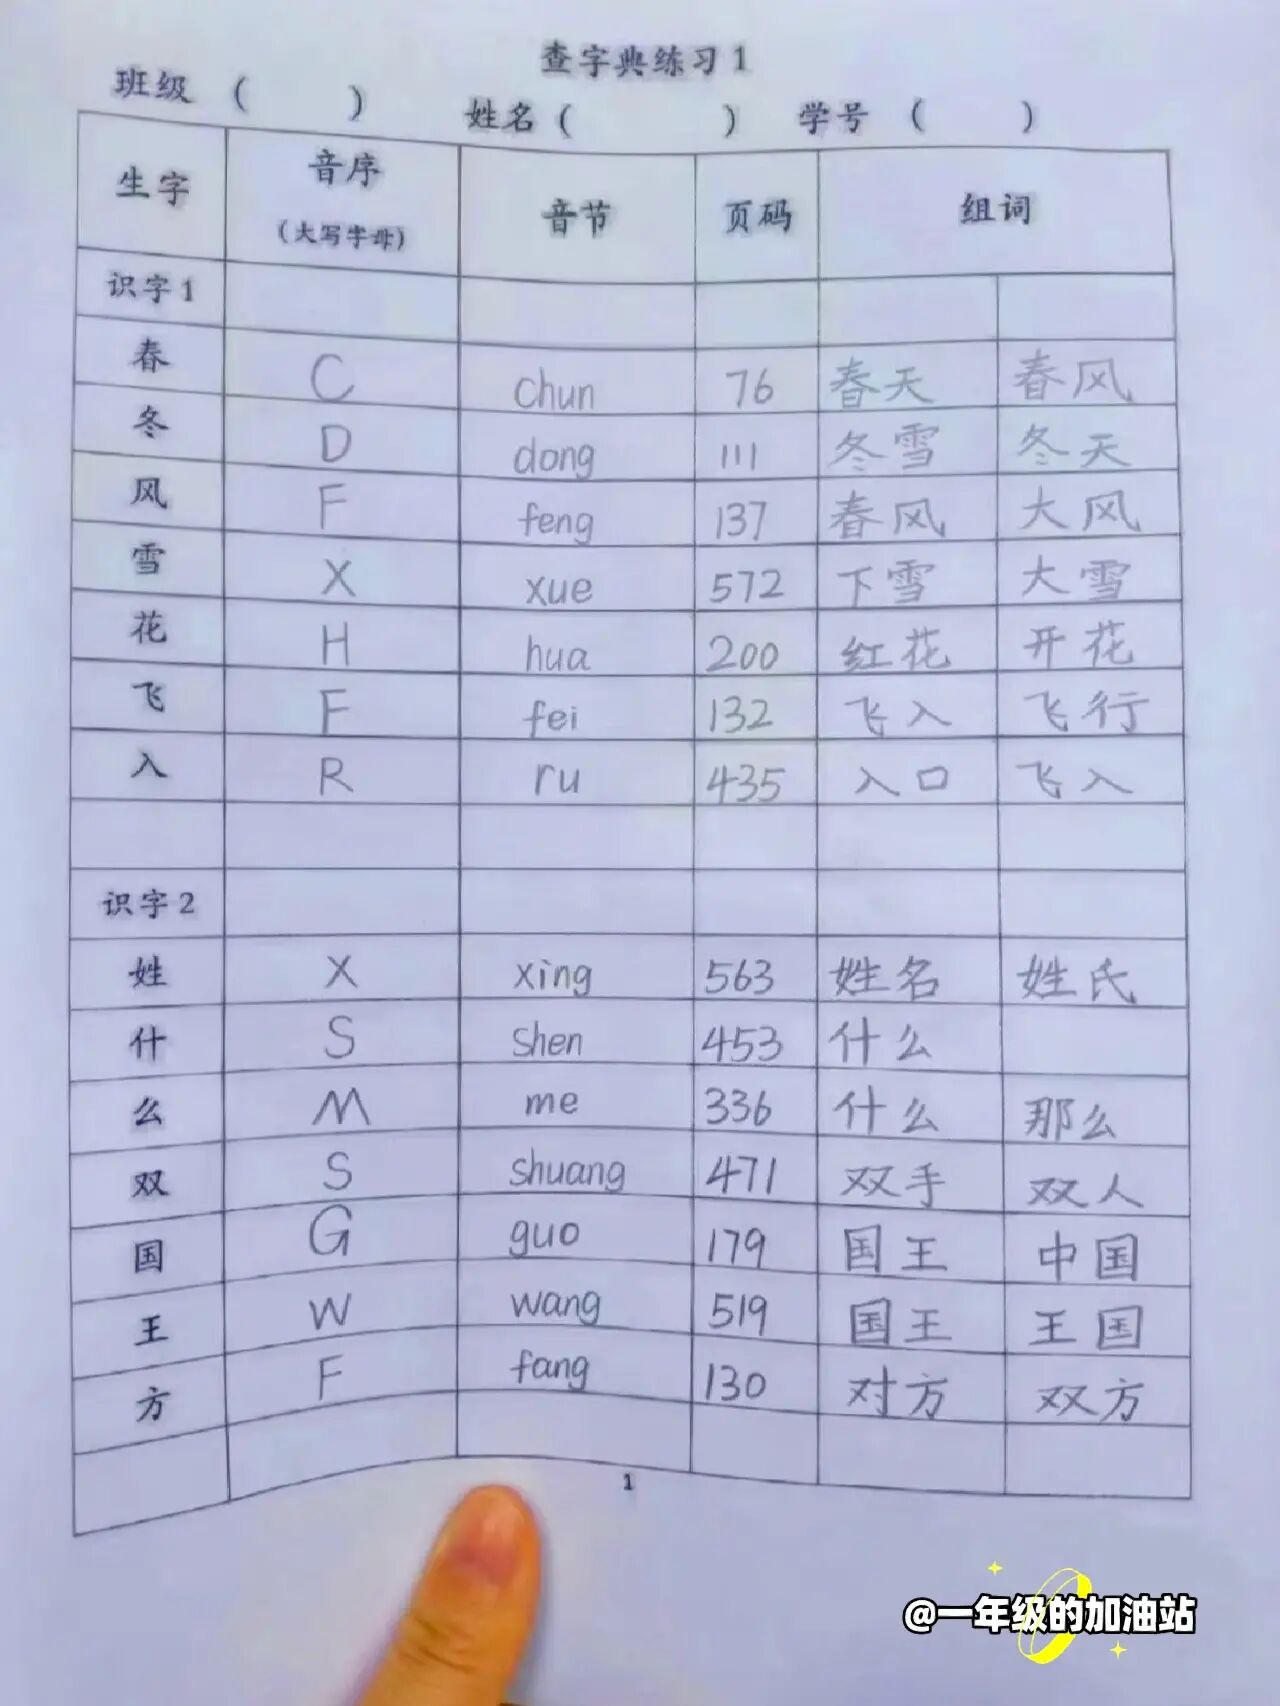 查字典练习1
班级 ( ) 姓名 ( ) 学号 ( )
生字 音序 (大写字母) 音节 页码 组词
识字1
春 C chun 76 春天 春风
冬 D dong 111 冬雪 冬天
风 F feng 137 春风 大风
雪 X xue 572 下雪 大雪
花 H hua 200 红花 开花
飞 F fei 132 飞入 飞行
入 R ru 435 入口 飞入
识字2
姓 X xing 563 姓名 姓氏
什 S shen 453 什么
么 M me 336 什么 那么
双 S shuang 471 双手 双人
国 G guo 179 国王 中国
王 W wang 519 国王 王国
方 F fang 130 对方 双方
1
@一年级的加油站